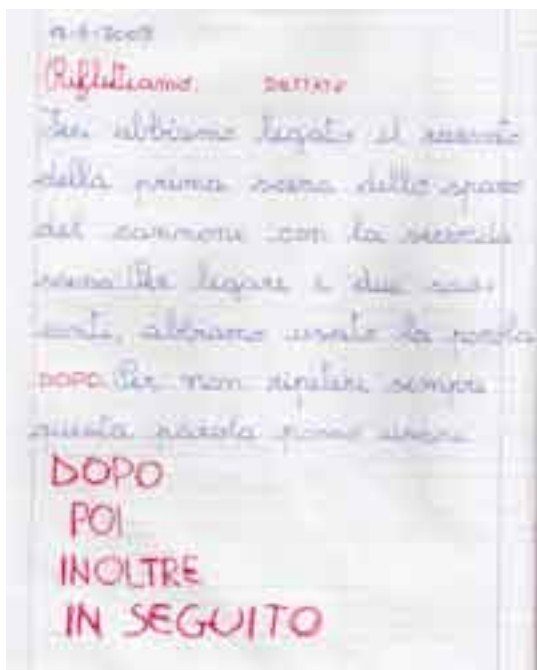 Riflettiamo. DETTATO
Ieri abbiamo legato il racconto
della prima scena dello sparo
del cannone con la seconda
scena. Per legare i due rac-
conti, abbiamo usato la parola
DOPO. Per non ripetere sempre
questa parola posso usare
DOPO
POI
INOLTRE
IN SEGUITO